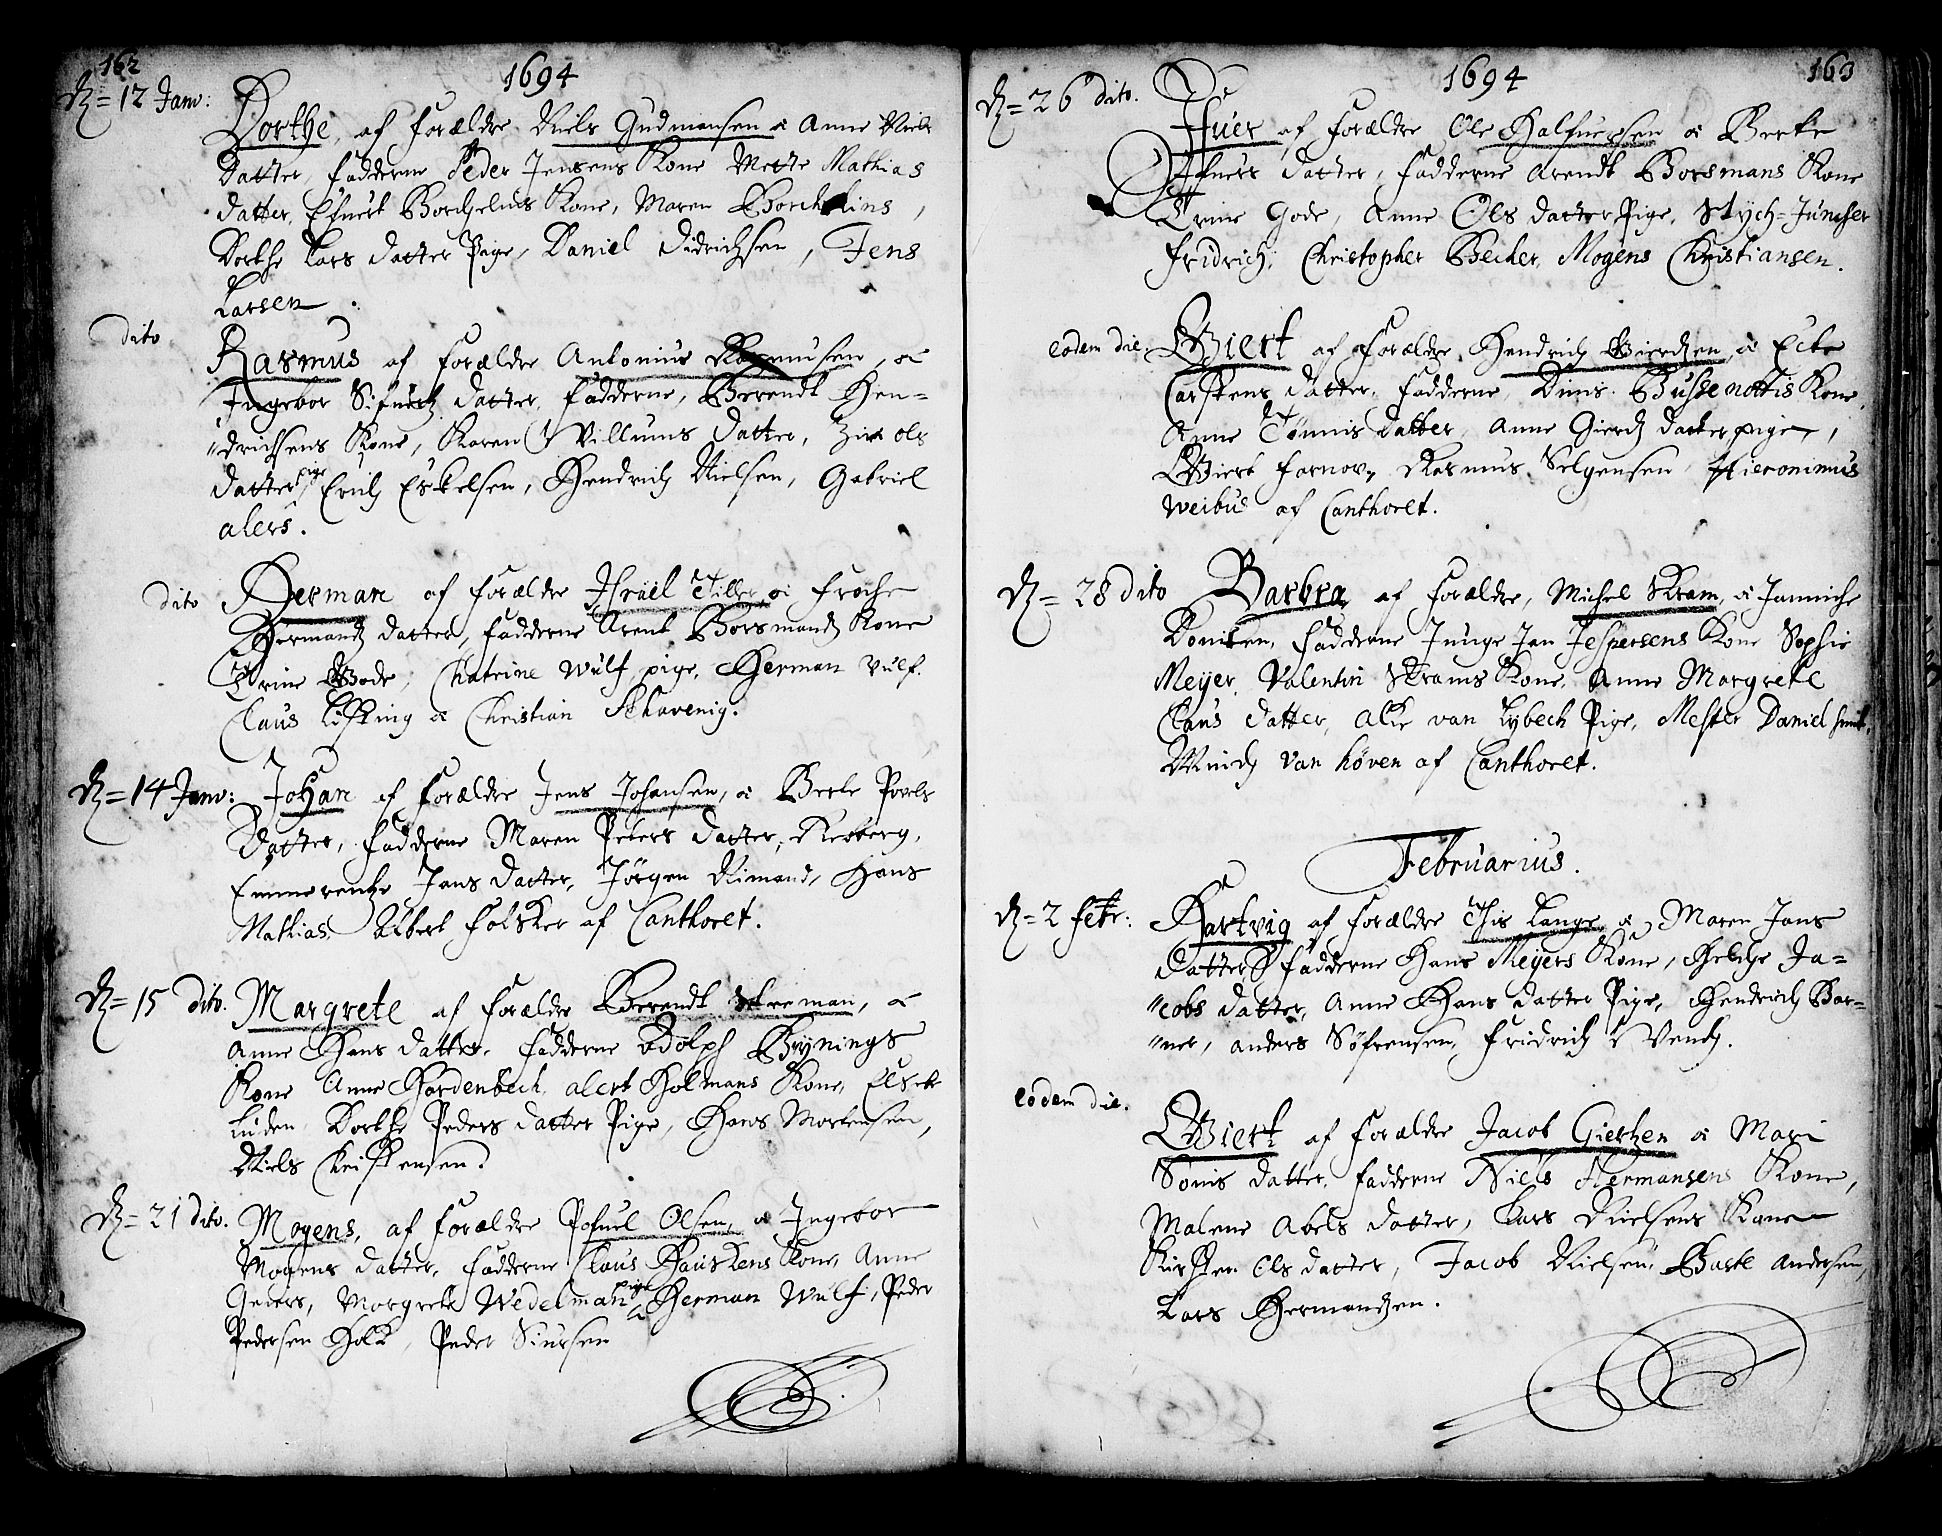 162
1694
D= 12 Janv:
Dorthe, af forældre Niels Gudmansen oc Anne Niels
datter, fadderne Peder Jensens Kone Mette Mathias
datter, Efuert Borchelins Kone, Maren Borchelins,
Dorthe Lars datter Pige, Daniel Didrichsen, Jens
Larsen.
dito
Rasmus af forældre Antonius Rasmusen, oc
Ingebor Sifuertz datter, fadderne, Berendt Hen=
"drichsens Kone, Karen Villums datter, Ols
datter pige, Erich Eskelsen, Hendrich Nielsen, Gabriel
alers.
dito
Herman af forældre Israel Tiller oc Froche
Hermandz datter, fadderne Arent Borsmandz Kone
Trine Gode, Chatrine Wulf pige, Herman Vulf.
Claus Lisking oc Christian Schavenig.
D= 14 Janv:
Johan af forældre Jens Johansen, oc Berte Povels
Datter, fadderne Maren Peters datter, Refberg,
Emmerentze Jans datter, Jörgen Rimand, Hans
Mathias, Albert Folsker af Canthoret.
D= 15 dito.
Margrete af forældre Berendt Streman, oc
Anne Hans datter, fadderne Adolph Brynings
Kone Anne Hardenbech, alert Holmans Kone, Elsebe
Luden Dorthe Peders datter Pige, Hans Mortensen,
Niels Christensen.
D= 21 dito.
Mogens, af forældre Pofuel Olsen, oc Ingebor
Mogens datter, fadderne Claus Hauskens Kone, Anne
Geiers, Morgrete Wedelman pige oc Herman Wulf, Peder
Pedersen Holck, Peder Siursen
1694
163
D= 26 dito.
Ifuer af forældre Ole Halfuersen oc Berte
Ifuers datter, fadderne Arendt Borsmans Kone
Trine Gode, Anne Ols datter Pige, Stych=Juncker
Fridrich, Christopher Becher, Mogens Christiansen.
eodem die
Giert af forældre Hendrich Gierdzen, oc Ecke
Carstens datter, fadderne Dims. Bussenottis Kone,
Anne Tönnis datter, Anne Gierdz datter pige,
Giert Farnov, Rasmus Selgensen, Hieronimus
Weibus af Canthoret.
D= 28 dito
Barbra af forældre, Michel Kram, oc Jannicke
Doniken, fadderne Junge Jan Jespersens Kone Sophie
Meyer, Valentin Krams Kone, Anne Margrete
Claus datter, Alke van Lybech Pige, Mester Daniel smit,
Wind van höven af Canthoret.
Februarius.
D= 2 febr:
Hartvig af forældre This Lange oc Maren Jans
datter, fadderne Hans Meyers Kone, Helche Ja=
"cobs datter, Anne Hans datter Pige, Hendrich Bor=
"ner, anders Söfrensen, Fridrich Vendz.
eodem die.
Giert af forældre Jacob Giertzen oc Mari
Sönis datter, fadderne Niels Hermansens Kone,
Malene Abels datter, Lars Nielsens Kone
Kirsten Ols datter, Jacob Nielsen, Basse Andersen,
Lars Hermandzen.